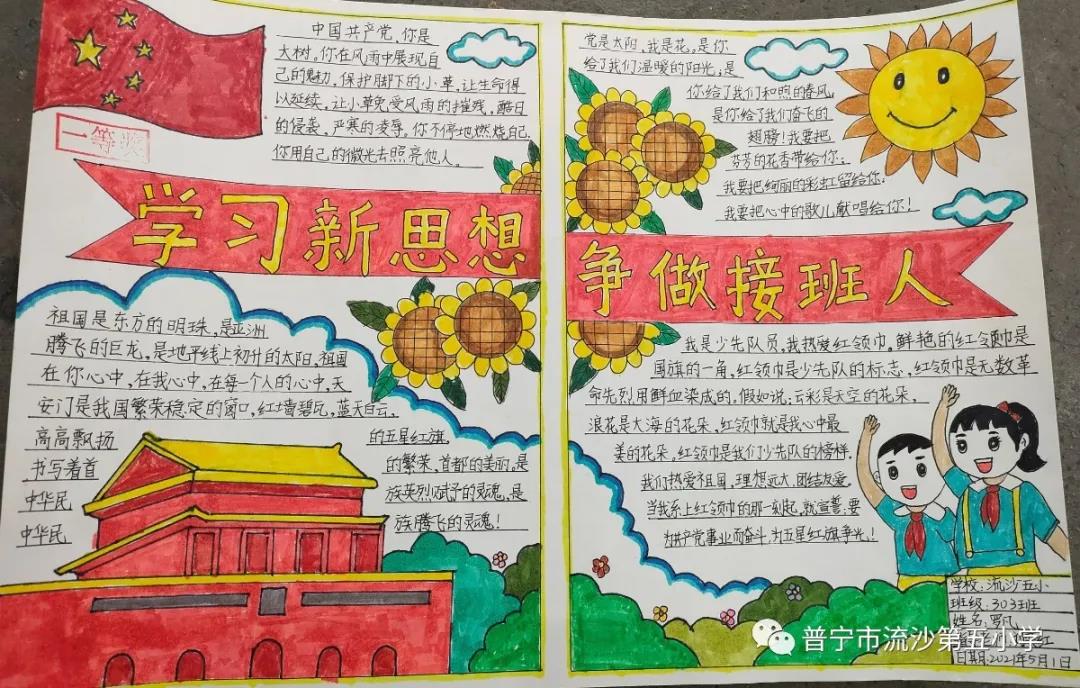 中国共产党，你是
大树。你在风雨中展现自
己的魅力，保护脚下的小草，让生命得
以延续，让小草免受风雨的摧残，酷日
的侵袭，严寒的凌辱。你不停地燃烧自己，
你用自己的微光去照亮他人。
一等奖
学习新思想
祖国是东方的明珠，是亚洲
腾飞的巨龙，是地平线上初升的太阳，祖国
在你心中，在我心中，在每一个人的心中，天
安门是我国繁荣稳定的窗口，红墙碧瓦，蓝天白云，
高高飘扬 的五星红旗，
书写着首 的繁荣，首都的美丽，是
中华民 族英烈赋予的灵魂，是
中华民 族腾飞的灵魂！
党是太阳，我是花。是你
给了我们温暖的阳光，是
你给了我们和照的春风，
是你给了我们奋飞的
翅膀！我要把
芬芳的花香带给你；
我要把绚丽的彩虹留给你；
我要把心中的歌儿献唱给你！
争做接班人
我是少先队员，我热爱红领巾。鲜艳的红领巾是
国旗的一角，红领巾是少先队的标志，红领巾是无数革
命先烈用鲜血染成的，假如说：云彩是天空的花朵，
浪花是大海的花朵，红领巾就是我心中最
美的花朵，红领巾是我们少先队的榜样，
我们热爱祖国，理想远大，团结友爱，
当我系上红领巾的那一刻起，就宣誓：要
为共产党事业而奋斗，为五星红旗争光！
学校：流沙五小
班级：303班
姓名：罗凡
日期：2021年5月1日
普宁市流沙第五小学